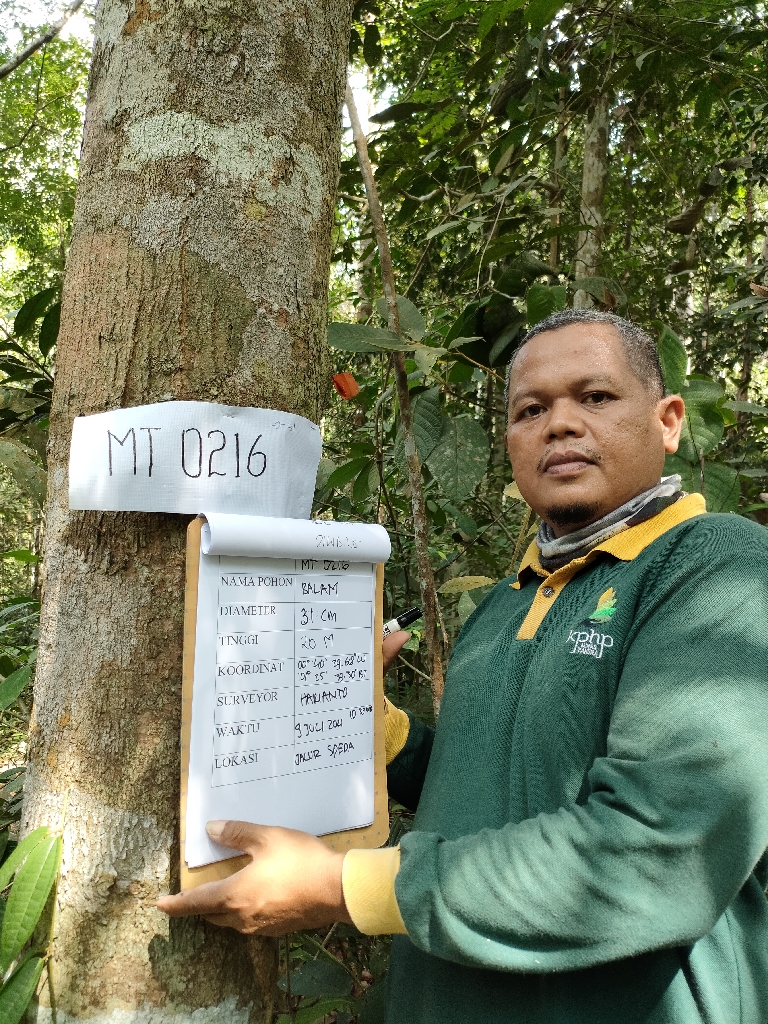 MT 0216
MT 0216
NAMA POHON BALAM
DIAMETER 31 CM
TINGGI 20 M
KOORDINAT
SURVEYOR HARIANTO
WAKTU 9 JULI
LOKASI JALUR SPEDA
kphp